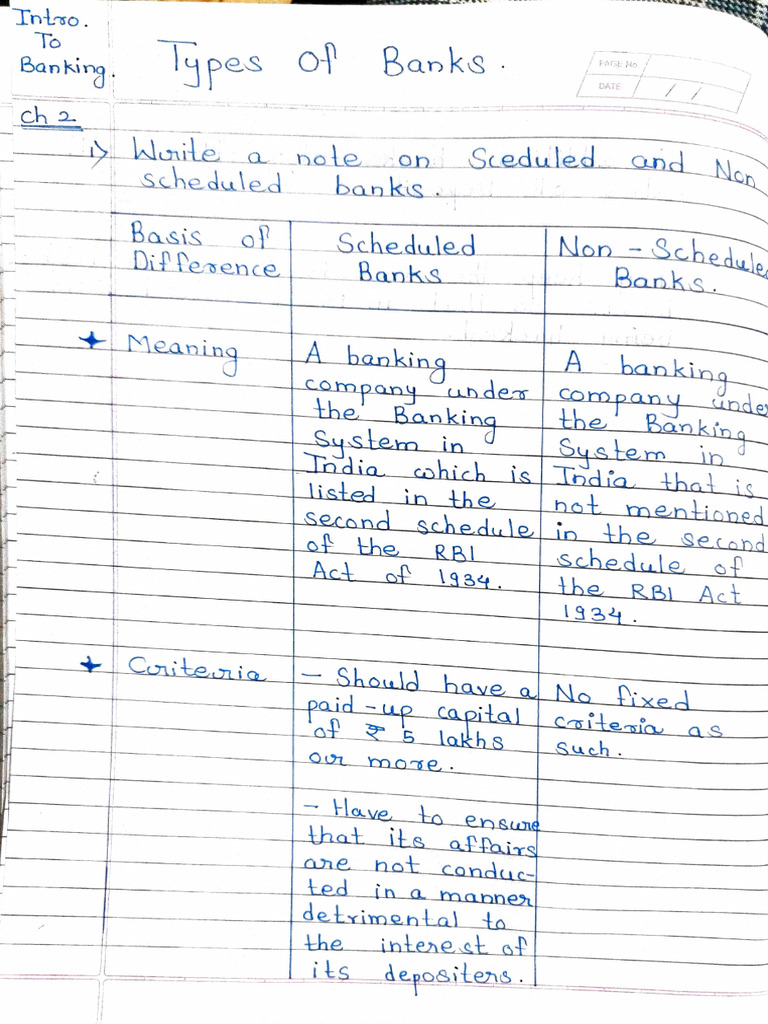 Intro.
To
Banking.
Types Of Banks.
PAGE No
DATE / /
Ch 2
i> Write a note on Sceduled and Non
scheduled banks.
Basis of
Difference
Scheduled
Banks
Non - Schedule
Banks.
✦ Meaning
A banking
company under
the Banking
System in
India which is
listed in the
second schedule
of the RBI
Act of 1934.
A banking
company unde
the Banking
System in
India that is
not mentioned
in the second
schedule of
the RBI Act
1934.
✦ Criteria
- Should have a
paid-up capital
of ₹ 5 lakhs
or more.
- Have to ensure
that its affairs
are not conduc-
ted in a manner
detrimental to
the interest of
its depositers.
No fixed
criteria as
such.